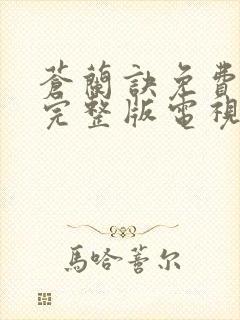 蒼蘭訣免費
完整版電視
馬哈蓍尔